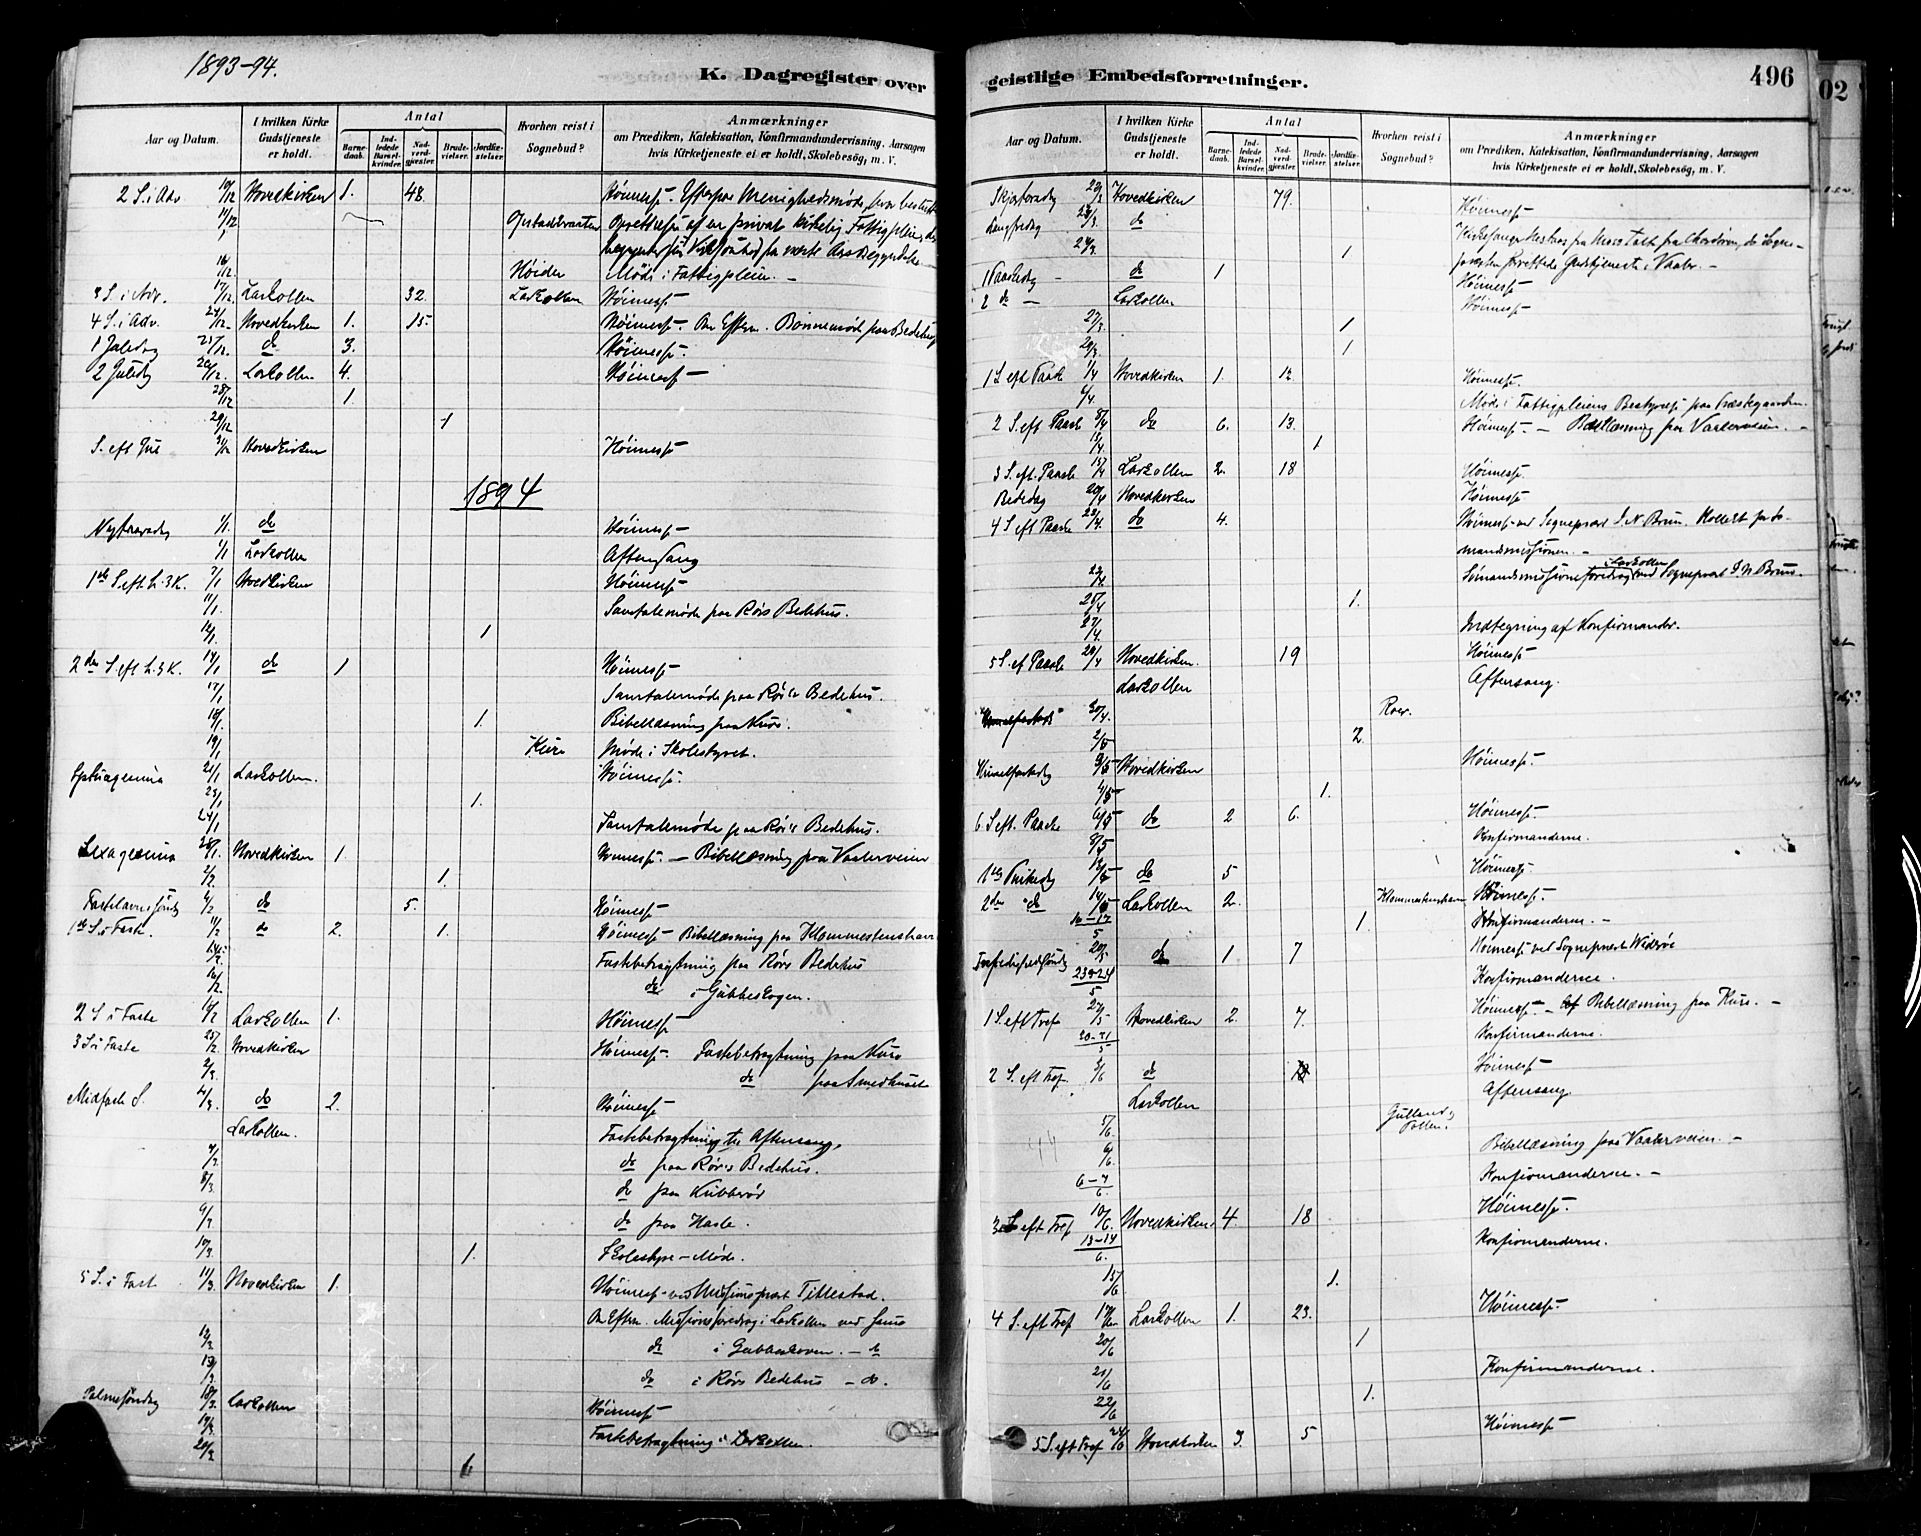 1893-94.
K. Dagregister over
Aar og Datum. I hvilken Kirke Gudstjeneste er holdt. Antal Barnedaab. Indledede Barselkvinder. Nadverdgjester. Brudevielser. Jordfæstelser. Hvorhen reist i Sognebud? Anmærkninger om Prædiken, Katekisation, Konfirmandundervisning, Aarsagen hvis Kirketjeneste ei er holdt, Skolebesøg, m. V.
2 S. i Adv 10/12 Hovedkirken 1. 48. Höimesse. Efterpaa Menighedsmöde, hvor
11/12 Oprettelse af en privat kirkelig Fattigpleie,
16/12 Höider Möde i Fattigpleien. -
3 S. i Adv. 17/12 Larkollen 32. Larkollen Höimesse
4 S. i Adv. 24/12 Hovedkirken 1. 15. Höimesse. Om Efterm. Bönnemöde paa Bedehus
1 Juledag 25/12 do 3. Höimesse.
2 Juledag 26/12 Larkollen 4. Höimesse
28/12 1
29/12 1
S. eft Jul 31/12 Hovedkirken Höimesse
1894
Nytaarsdag 1/1 do Höimesse
1/1 Larkollen Aftensang
1ste S. eft h. 3 K. 7/1 Hovedkirken Höimesse
11/1 Samtalemöde paa Rörs Bedehus.
12/1 1
2den S. eft h. 3 K. 14/1 do 1 Höimesse
17/1 Samtalemöde paa Rörs Bedehus.
18/1 1. Bibellæsning paa Kure.
19/1 Kure Möde i Skolestyret.
Septuagesima 21/1 Larkollen. Höimesse.
23/1 1.
24/1 Samtalemöde paa Rörs Bedehus.
Sexagesima 28/1 Hovedkirken 1. Höimesse. - Bibellæsning paa Vaaterveien
2/2 1.
Fastelavnssöndag 4/2 do 5. Höimesse
1ste S. i Faste. 11/2 do 2. 1. Höimesse Bibellæsning paa Klommestenshavn
14/2 Fastebetragtning paa Rörs Bedehus
16/2 do i Gubbeskogen.
2 S. i Faste 18/2 Larkollen 1. Höimesse
3 S. i Faste 25/2 Hovedkirken Höimesse Fastebetragtning paa Kure
2/3 do paa Smedhuset
Midfaste S. 4/3 do 2. Höimesse
Larkollen. Fastebetragtning til Aftensang.
7/3 do paa Rörs Bedehus.
8/3 do paa Kubberöd
9/3 do paa Hasle.
10/3 1. Skolestyre-Möde.
5 S. i Fast 11/3 Hovedkirken 1. Höimesse ved Missionsprest Tillestad.
Om Efterm. Missionsforedrag i Larkollen ved samme
12/3 do i Gubbeskoven. - do
13/3 do i Rörs Bedehus - do.
Palmesöndag 18/3 Larkollen Höimesse
19/3 Fastebetragtning i Larkollen.
20/3 1

geistlige Embedsforretninger. 496
02
Aar og Datum. I hvilken Kirke Gudstjeneste er holdt. Antal Barnedaab. Indledede Barselkvinder. Nadverdgjester. Brudevielser. Jordfæstelser. Hvorhen reist i Sognebud? Anmærkninger om Prædiken, Katekisation, Konfirmandundervisning, Aarsagen hvis Kirketjeneste ei er holdt, Skolebesøg, m. V.
Skjærtorsdag Hovedkirken 79. Höimesse
Langfredag do
24/3 1
1 Paaskedag do 1 Höimesse
2 do - Larkollen Höimesse
27/3 1
29/3 1
1 S. eft Paask 1/4 Hovedkirken 1. 12. Höimesse.
6/4 Möde i Fattigpleiens Bestyrelse paa Præstegaarden.
2 S. eft Paask 8/4 do 6. 13. Höimesse. - Bibellæsning paa Vaaterveien. -
13/4 1
3 S. eft. Paask 15/4 Larkollen 2. 18 Höimesse.
Bededag 20/4 Hovedkirken Höimesse
4 S. eft Paask 22/4 do 4. Höimesse ved Sogneprest I. N. Bruun. Kollekt for Sömandsmissionen. -
23/4 Sömandsmissionsforedrag Larkollen ved Sogneprest I. N. Bruun.
25/4 1.
27/4 Indtegning af Konfirmander.
5 S. ef Paask 29/4 Hovedkirken. 19 Höimesse
Larkollen Aftensang.
30/4 Roer.
2/5 2.
Himmelfartsdag 3/5 Hovedkirken Höimesse.
4/5 1.
6 S. eft. Paaske 6/5 do 2 6. Höimesse.
8/5 Konfirmanderne.
1ste Pinsedag 13/5 do 5 Höimesse.
2den do 14/5 Larkollen 2. Klommestenshavn Höimesse.
16-17/5 1. Konfirmanderne. -
Trefoldighedssöndag 20/5 do 1 7 Höimesse ved Sogneprest Wideröe
23&24/5 Konfirmanderne.
1 S. eft Tref 27/5 Hovedkirken 2. 7. Höimesse. - Bibellæsning paa Kure. -
30-31/5 Konfirmanderne.
2 S. eft Tref 3/6 do Höimesse
Larkollen Aftensang.
5/6
6/6 Bibellæsning paa Vaaterveien. -
6-7/6 Konfirmanderne. -
3 S. eft Tref 10/6 Hovedkirken. 4. 18 Höimesse.
13-14/6 Konfirmanderne.
15/6 1.
4 S. eft Tref 17/6 Larkollen 1. 23. Höimesse.
20/6 1
21/6 Konfirmanderne.
22/6 1.
5 S. eft Tref 24/6 Hovedkirken 3. 5 Höimesse